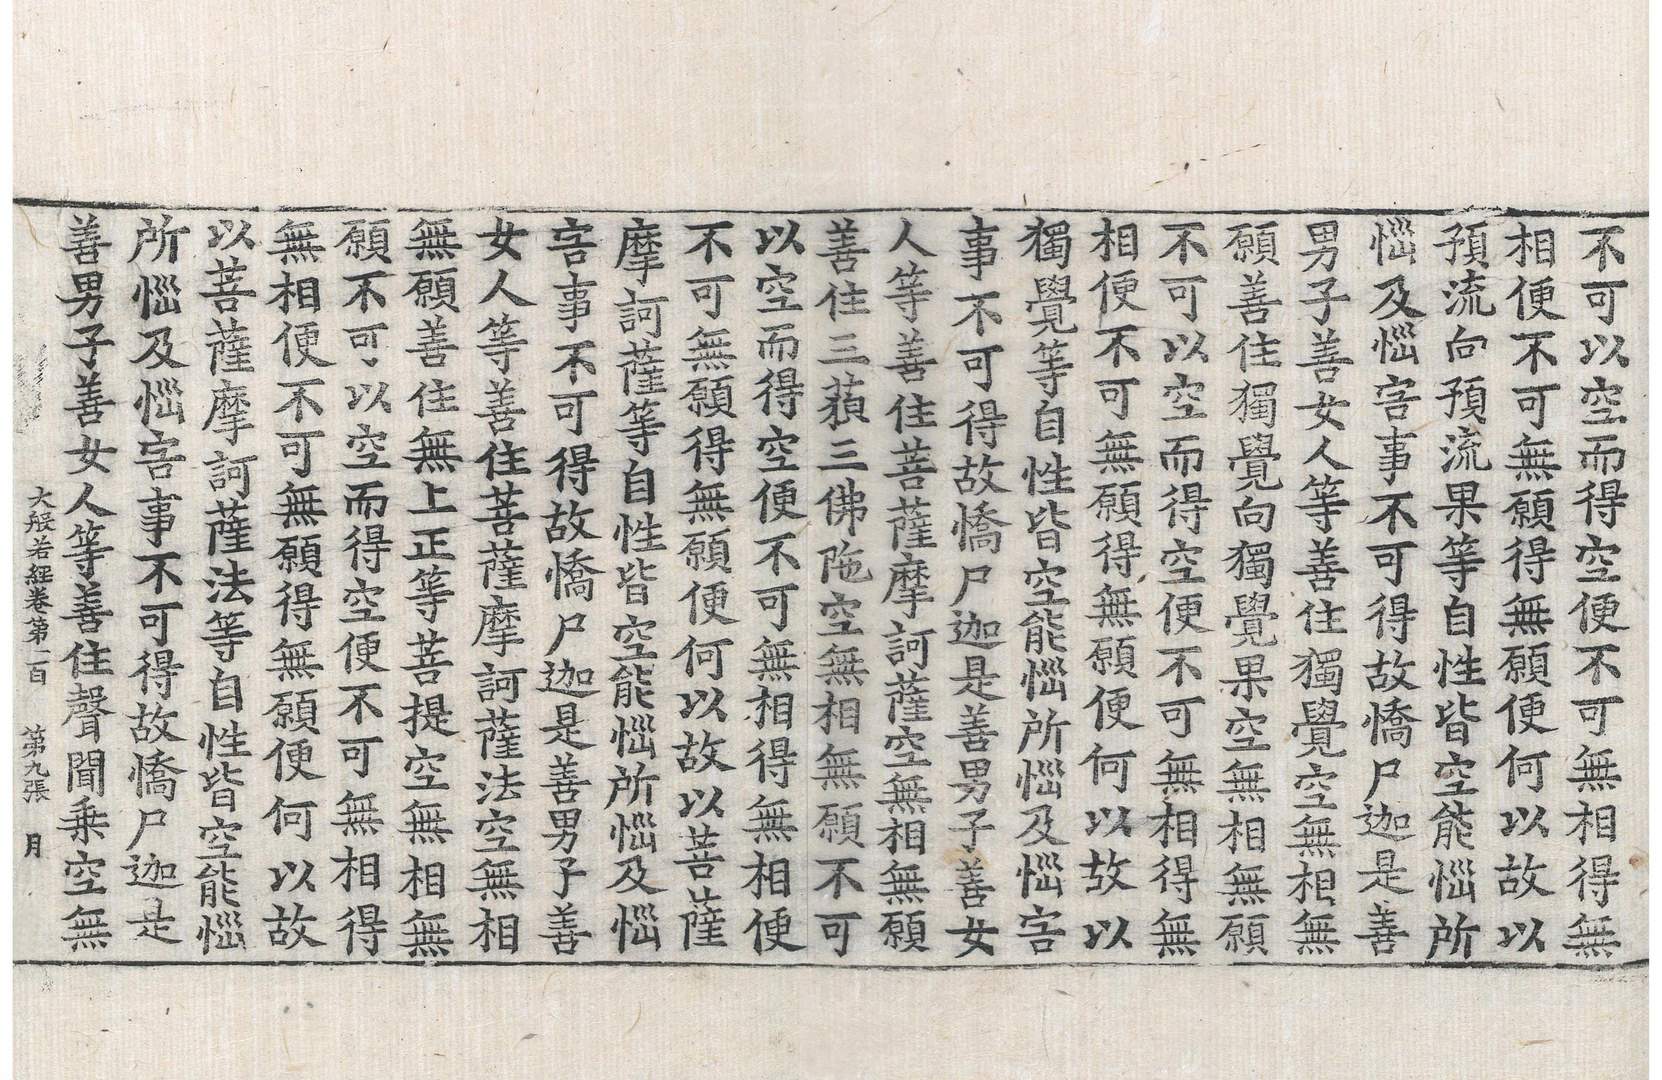 不可以空而得空便不可無相得無
相便不可無願得無願便何以故以
預流向預流果等自性皆空能惱所
惱及惱害事不可得故憍尸迦是善
男子善女人等善住獨覺空無相無
願善住獨覺向獨覺果空無相無願
不可以空而得空便不可無相得無
相便不可無願得無願便何以故以
獨覺等自性皆空能惱所惱及惱害
事不可得故憍尸迦是善男子善女
人等善住菩薩摩訶薩空無相無願
善住三藐三佛陁空無相無願不可
以空而得空便不可無相得無相便
不可無願得無願便何以故以菩薩
摩訶薩等自性皆空能惱所惱及惱
害事不可得故憍尸迦是善男子善
女人等善住菩薩摩訶薩法空無相
無願善住無上正等菩提空無相無
願不可以空而得空便不可無相得
無相便不可無願得無願便何以故
以菩薩摩訶薩法等自性皆空能惱
所惱及惱害事不可得故憍尸迦是
善男子善女人等善住聲聞乗空無
大般若經卷第一百 第九張 月